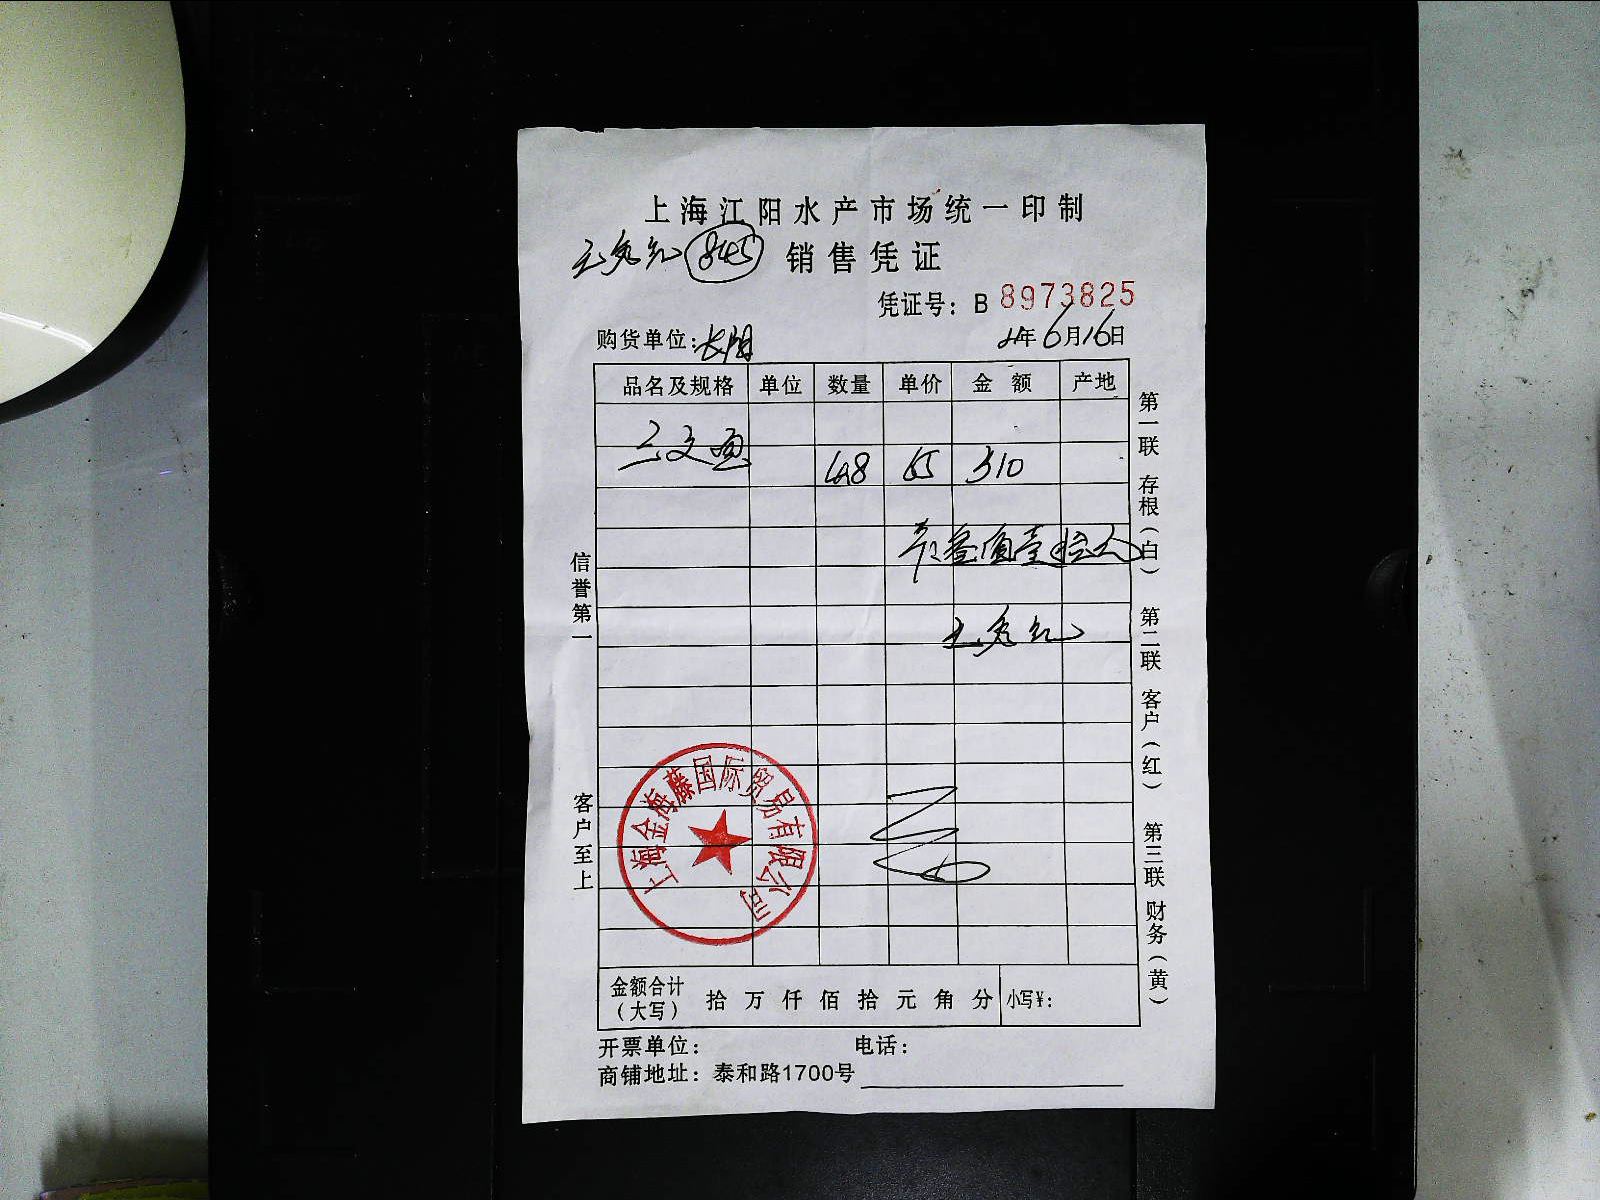 上海江阳水产市场统一印制
王秀红 845 销售凭证
凭证号：B 8973825
购货单位：长阳
年6月16日
品名及规格 单位 数量 单价 金额 产地
三文鱼 4.8 65 310
叁佰壹拾元
王秀红
信誉第一
客户至上
第一联 存根（白）
第二联 客户（红）
第三联 财务（黄）
上海金海藤国际贸易有限公司
金额合计（大写） 拾 万 仟 佰 拾 元 角 分 小写¥：
开票单位： 电话：
商铺地址：泰和路1700号